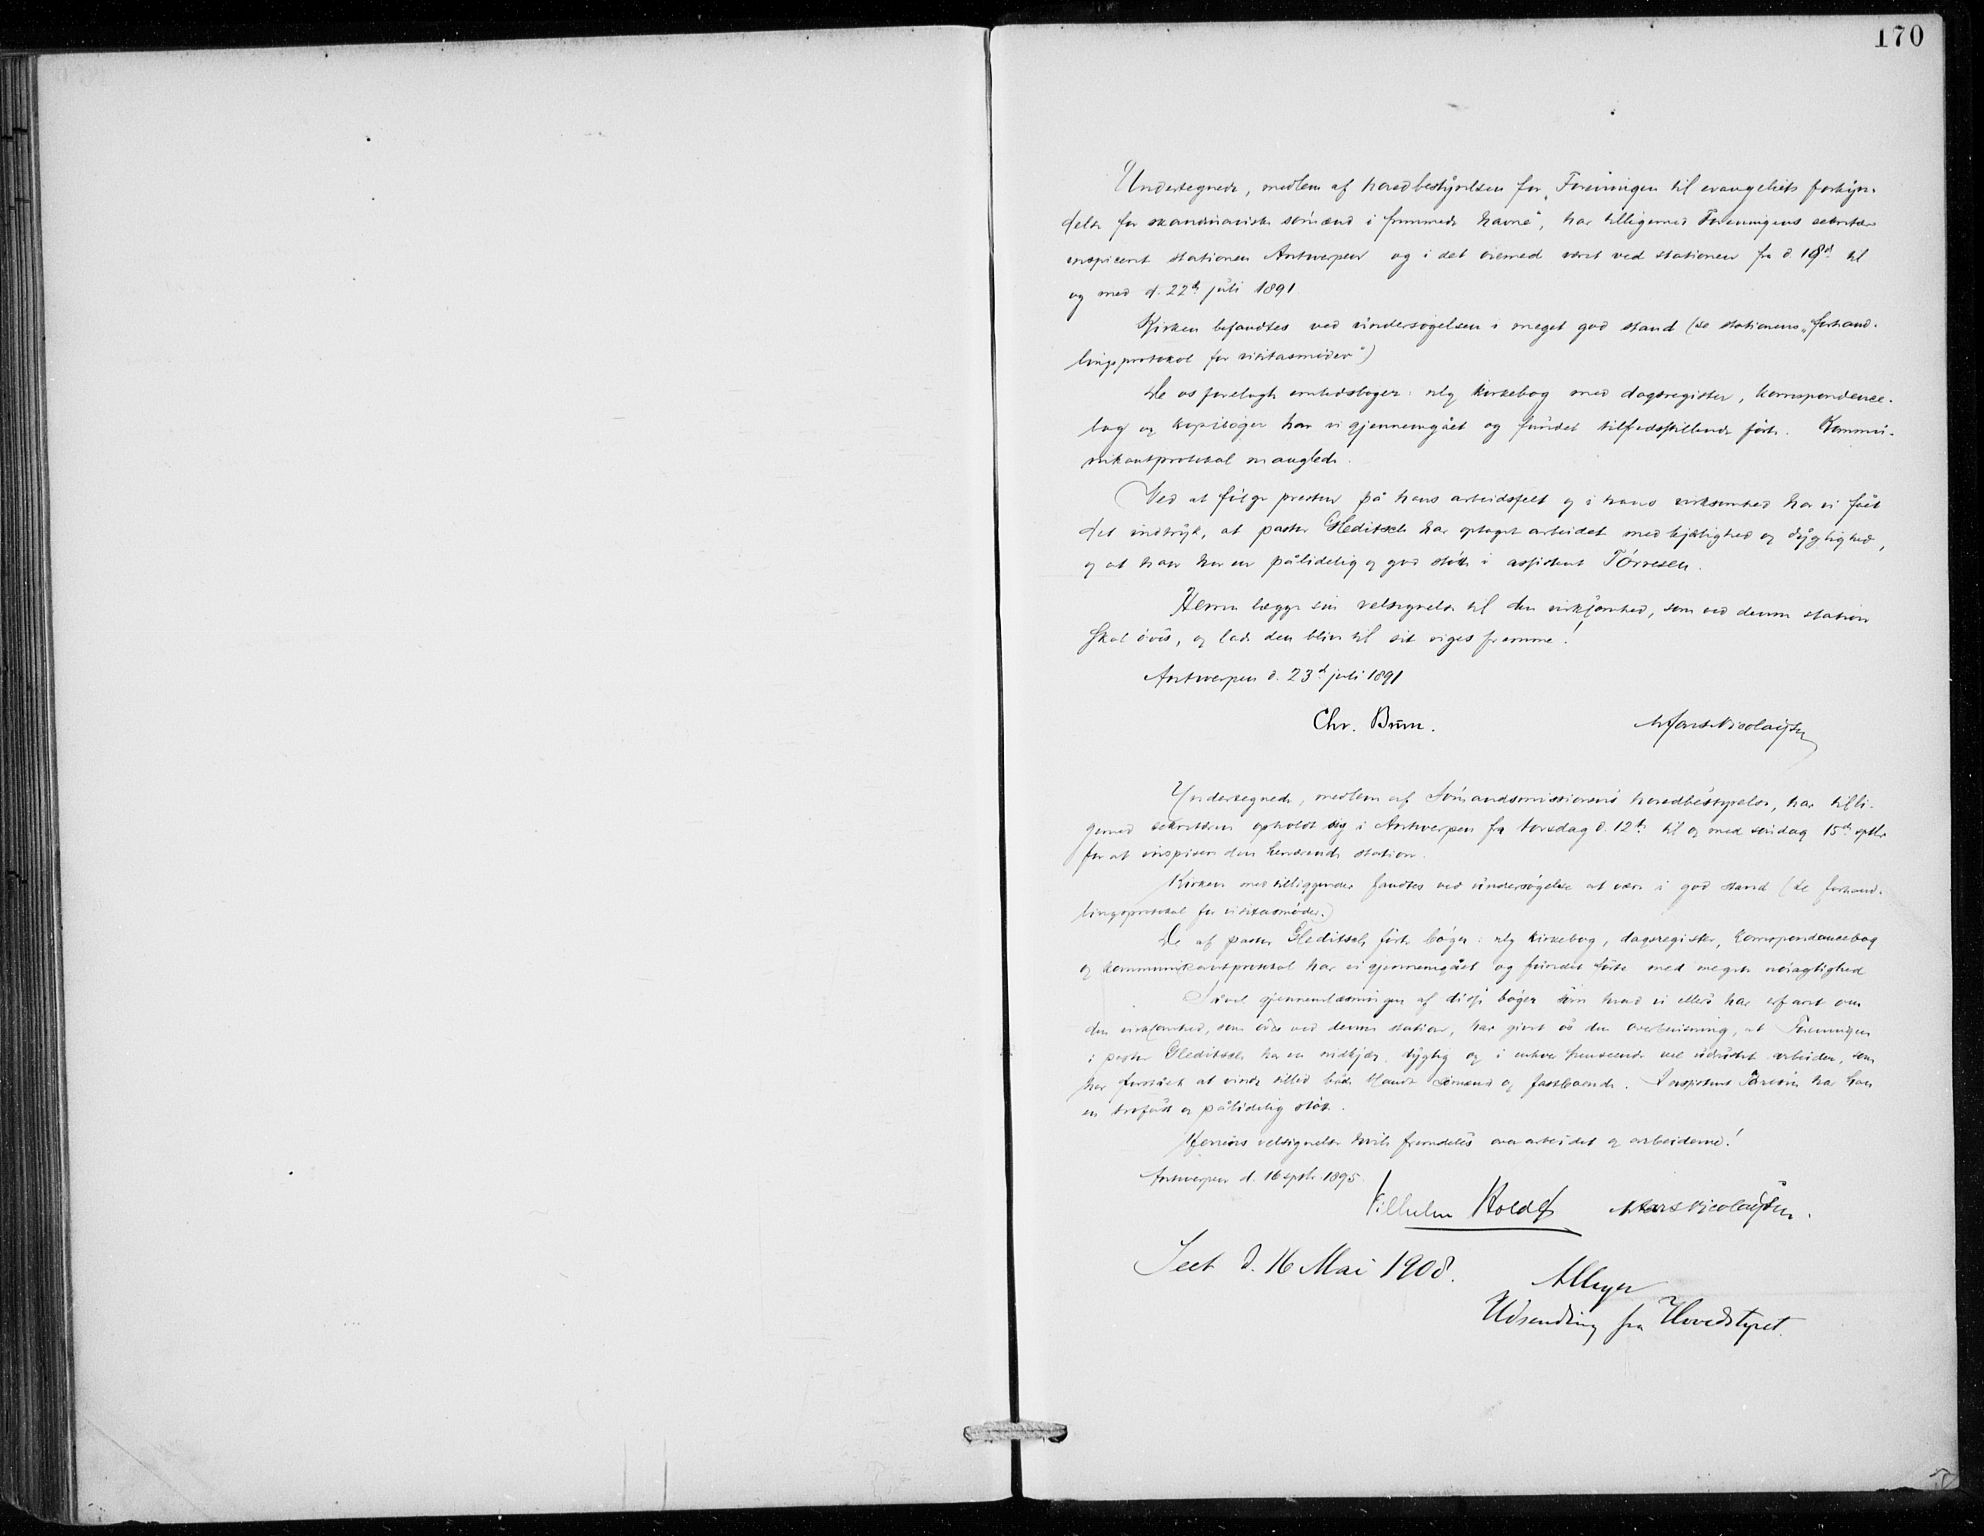 170
Undertegnede, medlem af hovedbestyrelsen for „Foreningen til evangeliets forkyn-
delse for skandinaviske sømænd i fremmede havne“, har tilligemed Foreningens sekretær
inspiceret stationen Antwerpen og i det øiemed været ved stationen fra d. 18d til
og med d. 22de juli 1891
Kirken befandtes ved undersøgelsen i meget god stand (se stationens „forhand-
lingsprotokol for visitasmøder“)
De os forelagte embedsbøger: nlg kirkebog med dagsregister, korrespondence-
bog og kopibøger har vi gjennemgået og fundet tilfredsstillende førte. Kommu-
nikantprotokol manglede.
Ved at følge presten på hans arbeidsfelt og i hans virksomhed har vi fået
det indtryk, at pastor Gleditsch har optaget arbeidet med kjærlighed og dygtighed,
og at han har en pålidelig og god støtte i assistent Törresen.
Herren lægge sin velsignelse til den virksomhed, som ved denne station
skal øves, og lade den blive til sit riges fremme!
Antwerpen d. 23d juli 1891
Chr. Brun. Nicolaysen
Undertegnede, medlem af Sømandsmissionens hovedbestyrelse, har tilli-
gemed sekretæren opholdt sig i Antwerpen fra torsdag d. 12te til og med søndag 15de septbr
for at inspisere den herværende station.
Kirken med tilliggender fandtes ved undersøgelse at være i god stand (se forhand-
lingsprotokol for visitasmøder.)
De af pastor Gleditsch førte bøger: nlg kirkebog, dagsregister, korrespondancebog
og kommunikantprotokol har vi gjennemgået og fundet førte med megen nøiagtighed
Såvel gjennemlæsningen af disse bøger som hvad vi ellers har erfaret om
den virksomhed, som øves ved denne station, har givet os den overbevisning, at Foreningen
i pastor Gleditsch har en nidkjær, dygtig og i enhver henseende vel udrustet arbeider, som
har forstået at vinde tillid både blandt sømænd og fastboende. I assistent Törresen har han
en trofast og pålidelig støtte.
Herrens velsignelse hvile fremdeles over arbeidet og arbeiderne!
Antwerpen d. 16 septb. 1895.
Vilhelm Koldf Nicolaysen.
Seet d. 16 Mai 1908.
AMeyer
Udsending fra Hovedstyret.